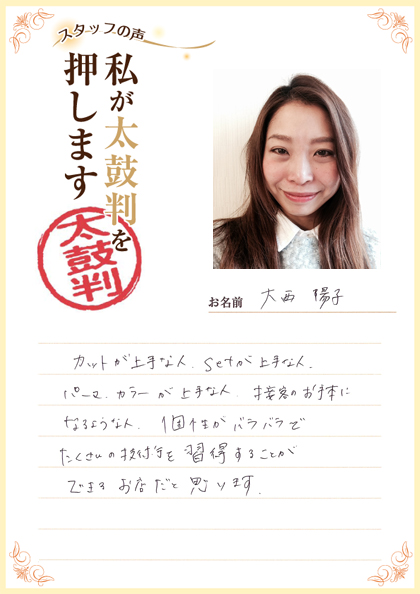 スタッフの声
私が太鼓判を
押します
太鼓判
お名前 大西 陽子
カットが上手な人、Setが上手な人、
パーマ、カラーが上手な人、接客のお手本に
なるような人、個性がバラバラで
たくさんの技術を習得することが
できるお店だと思います。